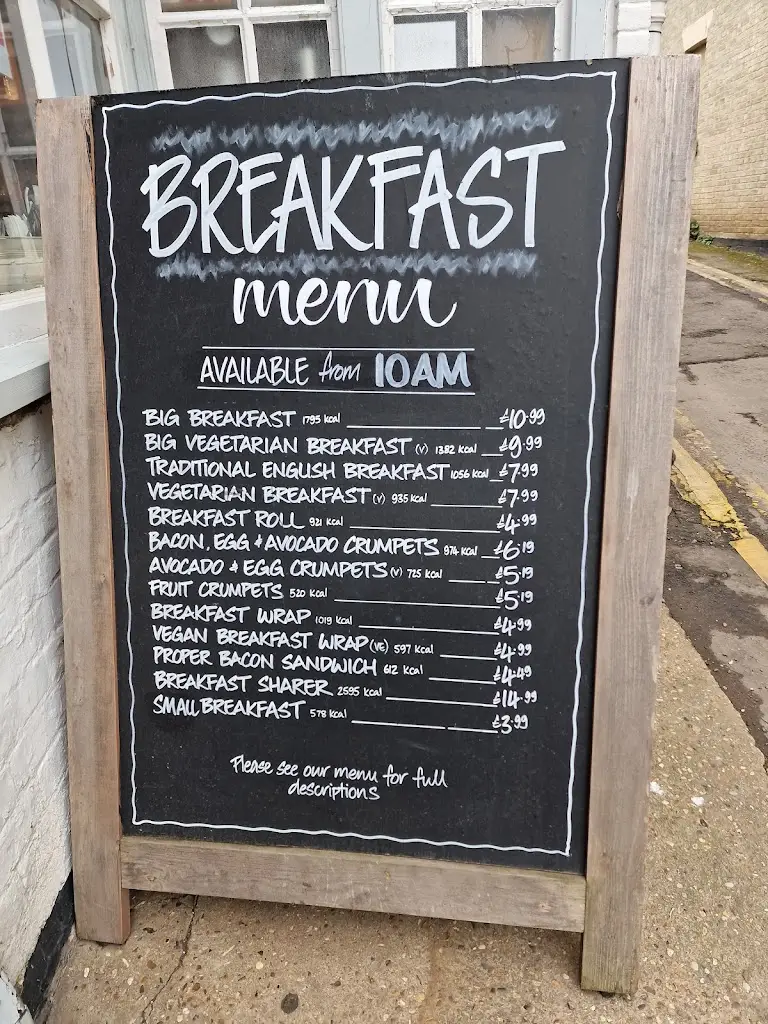 BREAKFAST
menu
AVAILABLE from 10AM
BIG BREAKFAST 1795 kcal £10.99
BIG VEGETARIAN BREAKFAST (V) 1382 kcal £9.99
TRADITIONAL ENGLISH BREAKFAST 1056 kcal £7.99
VEGETARIAN BREAKFAST (V) 935 kcal £7.99
BREAKFAST ROLL 921 kcal £4.99
BACON, EGG & AVOCADO CRUMPETS 974 kcal £6.19
AVOCADO & EGG CRUMPETS (V) 725 kcal £5.19
FRUIT CRUMPETS 520 kcal £5.19
BREAKFAST WRAP 1019 kcal £4.99
VEGAN BREAKFAST WRAP (VE) 597 kcal £4.99
PROPER BACON SANDWICH 612 kcal £4.49
BREAKFAST SHARER 2695 kcal £14.99
SMALL BREAKFAST 578 kcal £3.99
Please see our menu for full
descriptions